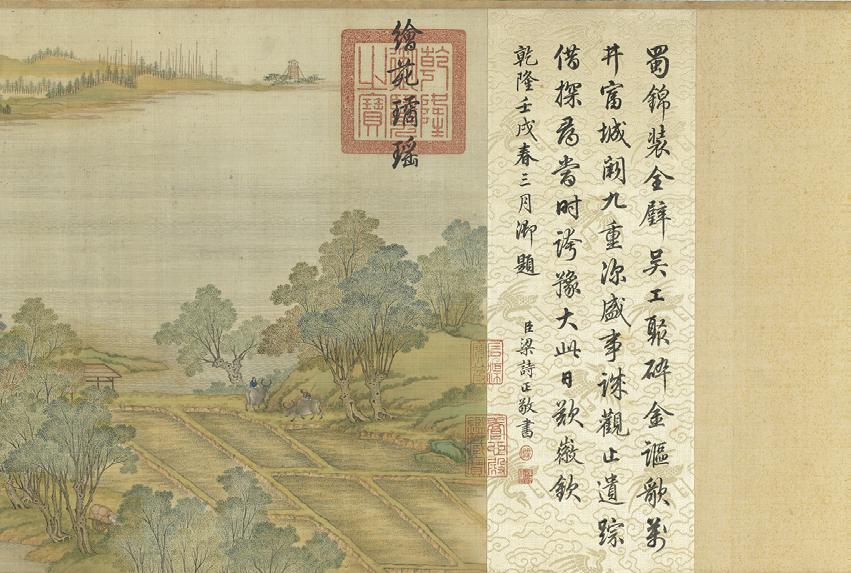 蜀錦装全璧吳工聚碎金謳歌萬
井富城闕九重深盛事誠觀止遺踪
借探尋當時誇豫大此日歎徽欽
乾隆壬戌春三月御題
臣梁詩正敬書
繪苑璚瑤
乾隆御覽之寶